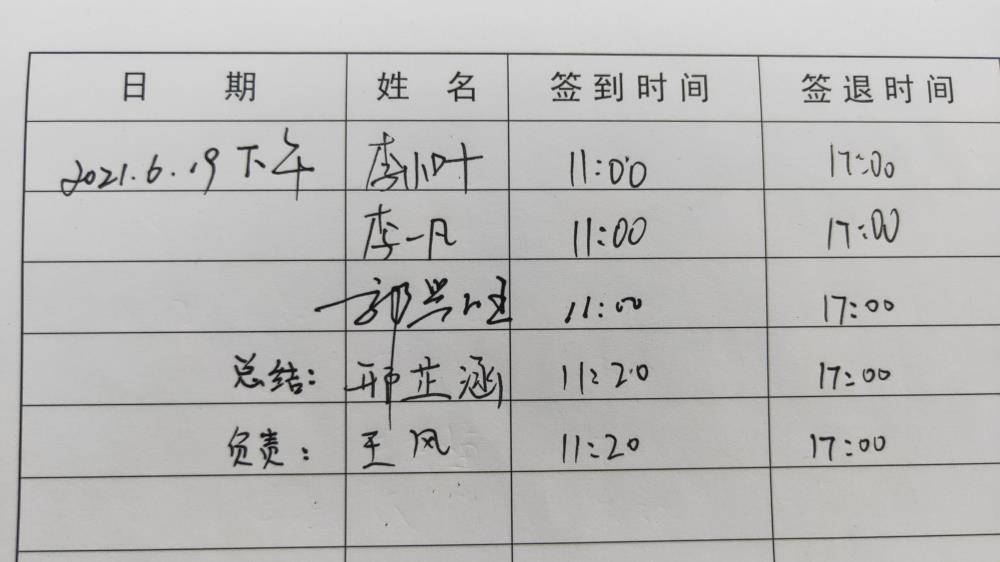 日 期 姓 名 签到时间 签退时间
2021.6.19 下午 李小叶 11:00 17:00
李一凡 11:00 17:00
郭兴旺 11:00 17:00
总结: 邢芷涵 11:20 17:00
负责: 王风 11:20 17:00